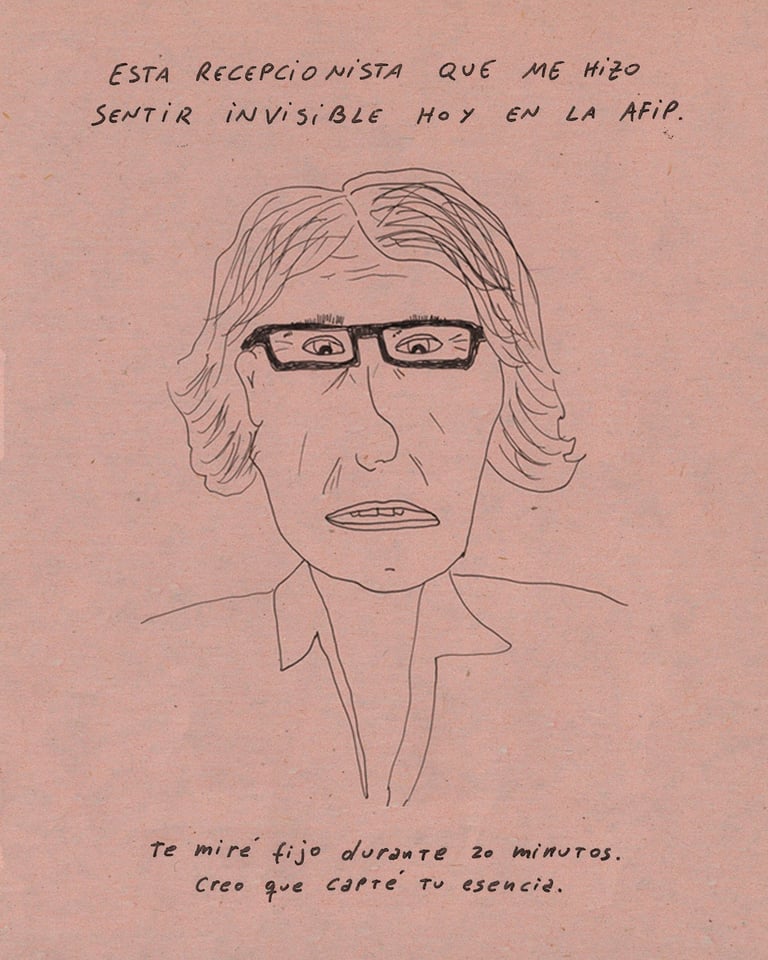 ESTA RECEPCIONISTA QUE ME HIZO
SENTIR INVISIBLE HOY EN LA AFIP.
Te miré fijo durante 20 minutos.
Creo que capté tu esencia.